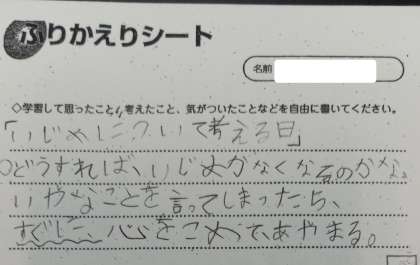 ふりかえりシート
名前
◇学習して思ったこと、考えたこと、気がついたことなどを自由に書いてください。
「いじめについて考える日」
○どうすれば、いじめがなくなるのかな。
いやなことを言ってしまったら、
すぐに、心をこめって、あやまる。